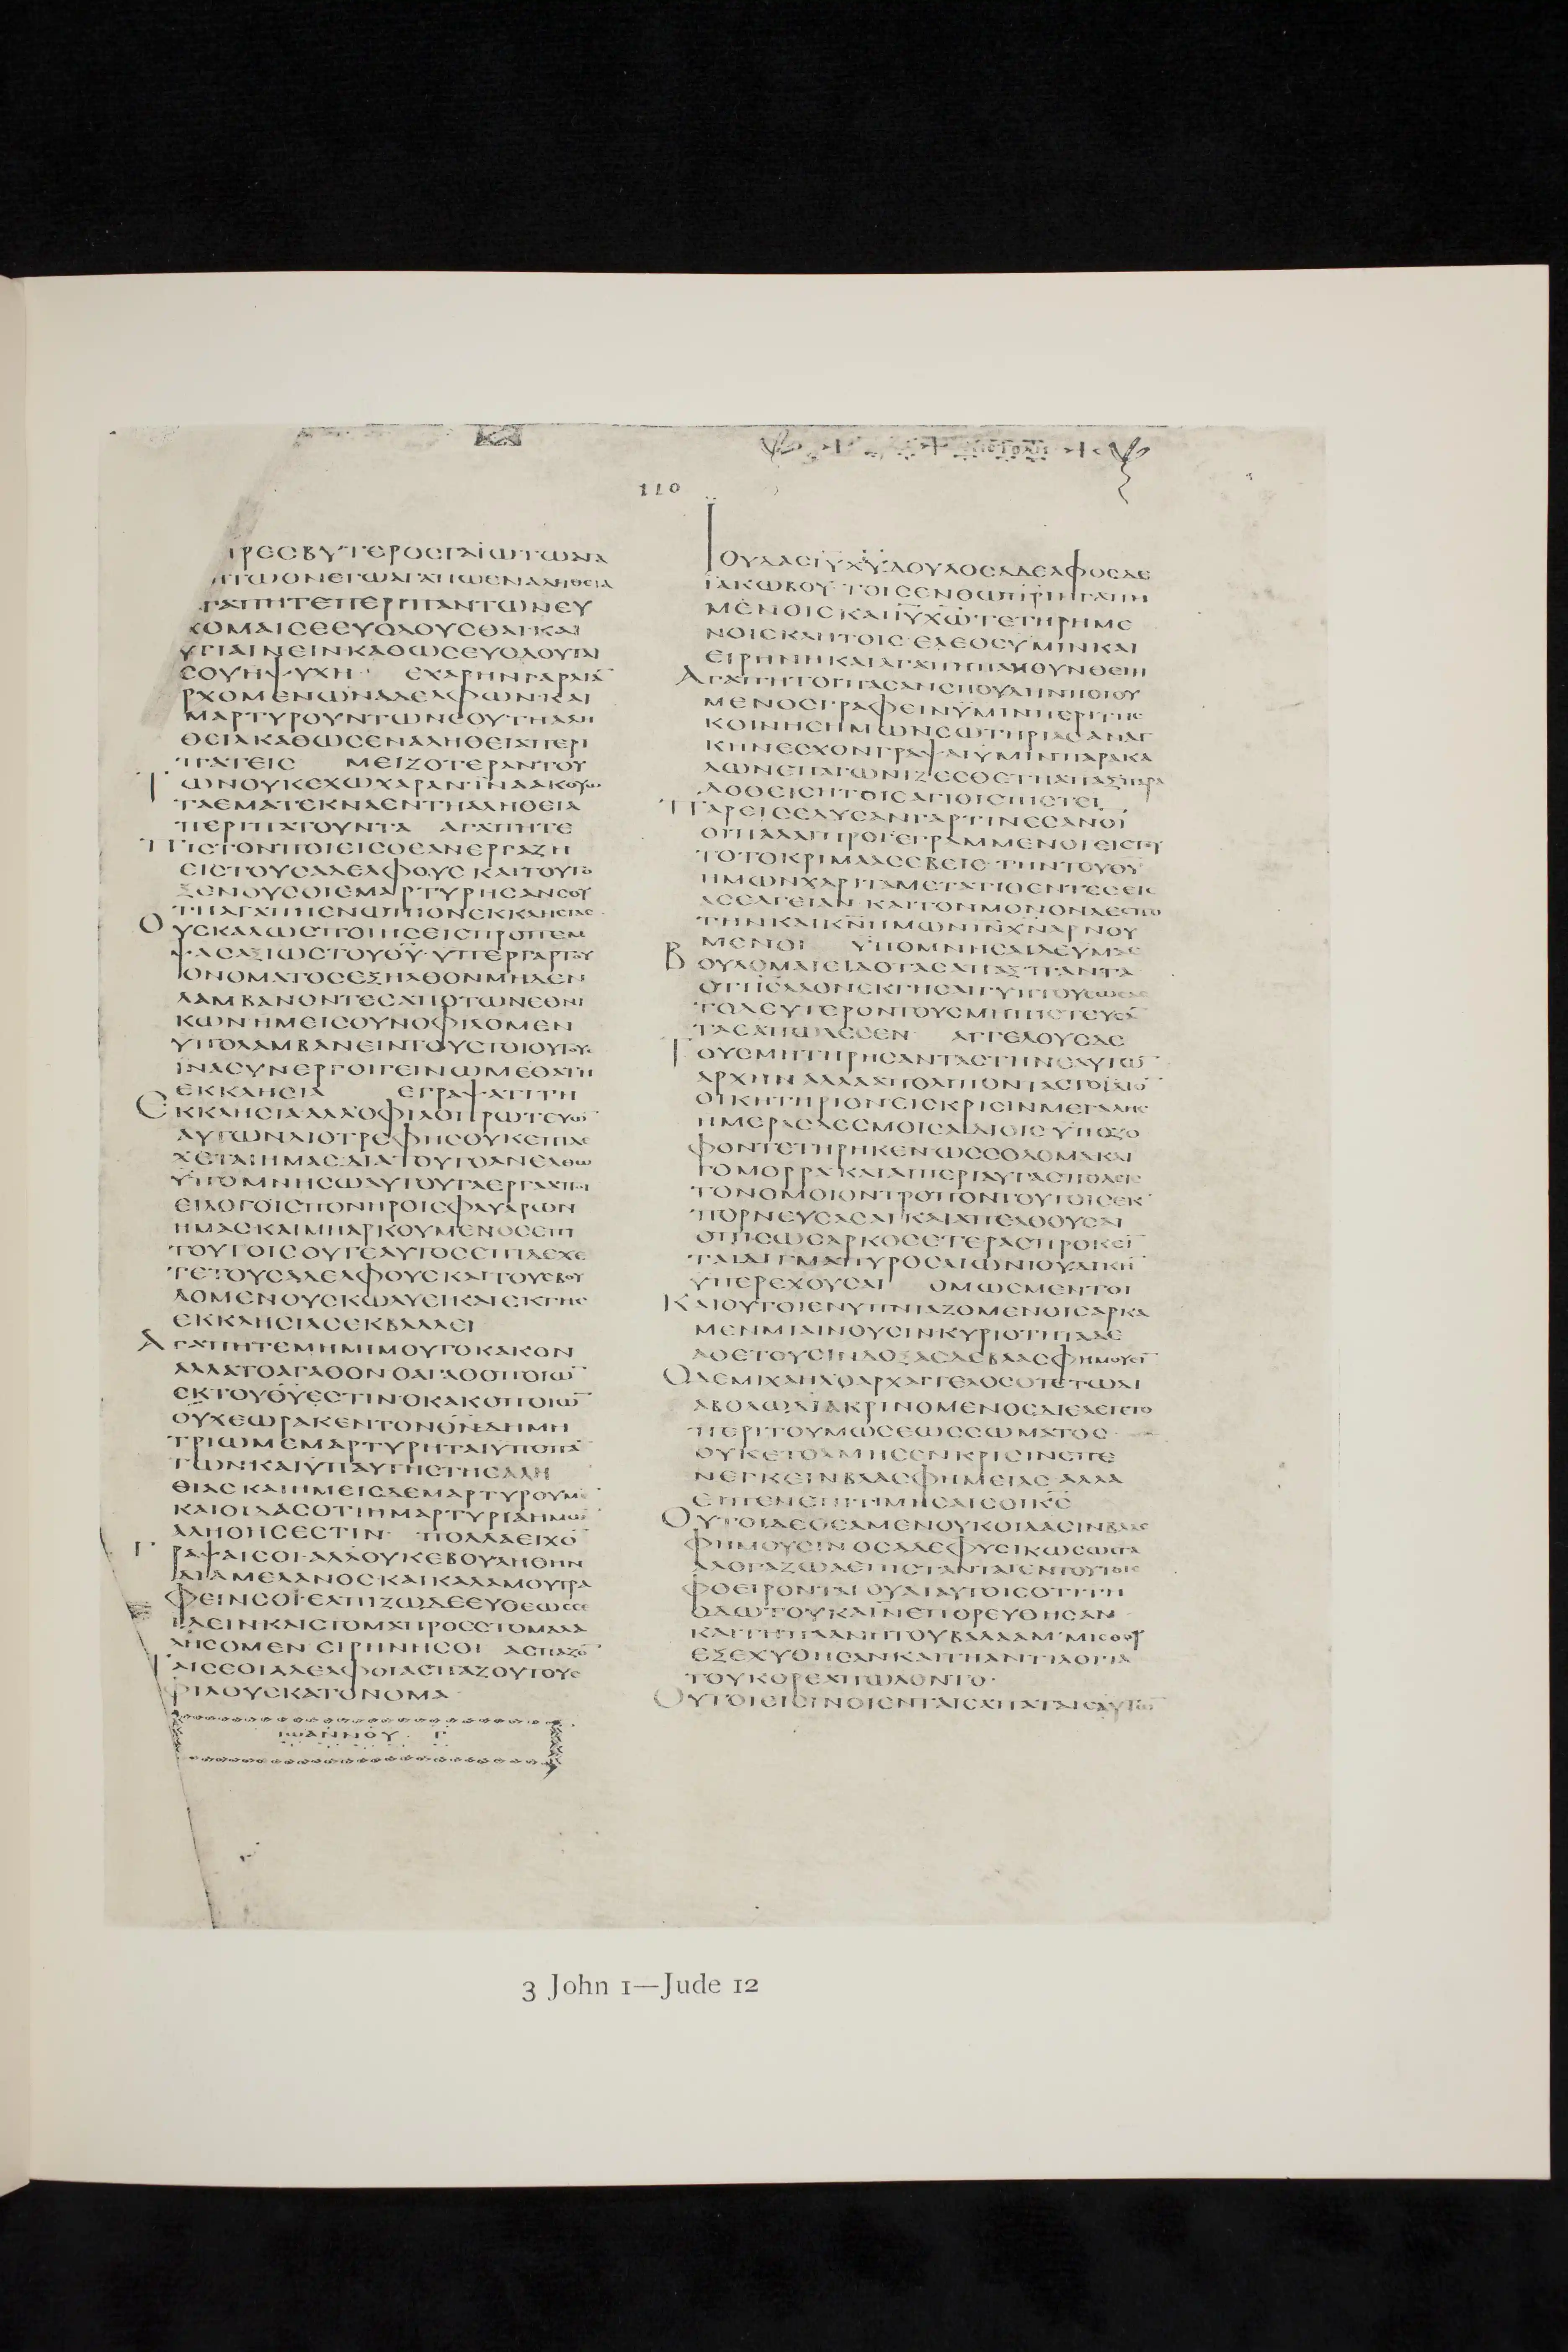 110
ΠΡΕΣΒΥΤΕΡΟΣ ΓΑΪΩ ΤΩ ΑΓΑ
ΓΑΠΗΤΕ ΠΕΡΙ ΠΑΝΤΩΝ ΕΥ
ΧΟΜΑΙ ΣΕ ΕΥΟΔΟΥΣΘΑΙ ΚΑΙ
ΥΓΙΑΙΝΕΙΝ ΚΑΘΩΣ ΕΥΟΔΟΥΤΑΙ
ΣΟΥ Η ΨΥΧΗ ΕΧΑΡΗΝ ΓΑΡ ΛΙΑ
ΕΡΧΟΜΕΝΩΝ ΑΔΕΛΦΩΝ ΚΑΙ
ΜΑΡΤΥΡΟΥΝΤΩΝ ΣΟΥ ΤΗ ΑΛΗ
ΘΕΙΑ ΚΑΘΩΣ ΕΝ ΑΛΗΘΕΙΑ ΠΕΡΙ
ΠΑΤΕΙΣ ΜΕΙΖΟΤΕΡΑΝ ΤΟΥ
ΤΩΝ ΟΥΚ ΕΧΩ ΧΑΡΑΝ ΪΝΑ ΑΚΟΥΩ
ΤΑ ΕΜΑ ΤΕΚΝΑ ΕΝ ΤΗ ΑΛΗΘΕΙΑ
ΠΕΡΙΠΑΤΟΥΝΤΑ ΑΓΑΠΗΤΕ
ΠΙΣΤΟΝ ΠΟΙΕΙΣ Ο ΕΑΝ ΕΡΓΑΖΗ
ΕΙΣ ΤΟΥΣ ΑΔΕΛΦΟΥΣ ΚΑΙ ΤΟΥΤΟ
ΞΕΝΟΥΣ ΟΙ ΕΜΑΡΤΥΡΗΣΑΝ ΣΟΥ
ΤΗ ΑΓΑΠΗ ΕΝΩΠΙΟΝ ΕΚΚΛΗΣΙΑΣ
ΟΥΣ ΚΑΛΩΣ ΠΟΙΗΣΕΙΣ ΠΡΟΠΕΜ
ΨΑΣ ΑΞΙΩΣ ΤΟΥ ΘΥ ΥΠΕΡ ΓΑΡ ΤΟΥ
ΟΝΟΜΑΤΟΣ ΕΞΗΛΘΟΝ ΜΗΔΕΝ
ΛΑΜΒΑΝΟΝΤΕΣ ΑΠΟ ΤΩΝ ΕΘΝΙ
ΚΩΝ ΗΜΕΙΣ ΟΥΝ ΟΦΙΛΟΜΕΝ
ΥΠΟΛΑΜΒΑΝΕΙΝ ΤΟΥΣ ΤΟΙΟΥΤΟΥΣ
ΪΝΑ ΣΥΝΕΡΓΟΙ ΓΕΙΝΩΜΕΘΑ ΤΗ
ΕΚΚΛΗΣΙΑ ΕΓΡΑΨΑ ΤΙ ΤΗ
ΕΚΚΛΗΣΙΑ ΑΛΛ Ο ΦΙΛΟΠΡΩΤΕΥΩ
ΑΥΤΩΝ ΔΙΟΤΡΕΦΗΣ ΟΥΚ ΕΠΙΔΕ
ΧΕΤΑΙ ΗΜΑΣ ΔΙΑ ΤΟΥΤΟ ΑΝ ΕΛΘΩ
ΥΠΟΜΝΗΣΩ ΑΥΤΟΥ ΤΑ ΕΡΓΑ Α ΠΟΙ
ΕΙ ΛΟΓΟΙΣ ΠΟΝΗΡΟΙΣ ΦΛΥΑΡΩΝ
ΗΜΑΣ ΚΑΙ ΜΗ ΑΡΚΟΥΜΕΝΟΣ ΕΠΙ
ΤΟΥΤΟΙΣ ΟΥΤΕ ΑΥΤΟΣ ΕΠΙΔΕΧΕ
ΤΕ ΤΟΥΣ ΑΔΕΛΦΟΥΣ ΚΑΙ ΤΟΥΣ ΒΟΥ
ΛΟΜΕΝΟΥΣ ΚΩΛΥΕΙ ΚΑΙ ΕΚ ΤΗΣ
ΕΚΚΛΗΣΙΑΣ ΕΚΒΑΛΛΕΙ
ΑΓΑΠΗΤΕ ΜΗ ΜΙΜΟΥ ΤΟ ΚΑΚΟΝ
ΑΛΛΑ ΤΟ ΑΓΑΘΟΝ Ο ΑΓΑΘΟΠΟΙΩ
ΕΚ ΤΟΥ ΘΥ ΕΣΤΙΝ Ο ΚΑΚΟΠΟΙΩ
ΟΥΧ ΕΩΡΑΚΕΝ ΤΟΝ ΘΝ ΔΗΜΗ
ΤΡΙΩ ΜΕΜΑΡΤΥΡΗΤΑΙ ΥΠΟ ΠΑ
ΤΩΝ ΚΑΙ ΥΠ ΑΥΤΗΣ ΤΗΣ ΑΛΗ
ΘΙΑΣ ΚΑΙ ΗΜΕΙΣ ΔΕ ΜΑΡΤΥΡΟΥΜΕ
ΚΑΙ ΟΙΔΑΣ ΟΤΙ Η ΜΑΡΤΥΡΙΑ ΗΜΩ
ΑΛΗΘΗΣ ΕΣΤΙΝ ΠΟΛΛΑ ΕΙΧΟ
ΓΡΑΨΑΙ ΣΟΙ ΑΛΛ ΟΥΚ ΕΒΟΥΛΗΘΗΝ
ΔΙΑ ΜΕΛΑΝΟΣ ΚΑΙ ΚΑΛΑΜΟΥ ΓΡΑ
ΦΕΙΝ ΣΟΙ ΕΛΠΙΖΩ ΔΕ ΕΥΘΕΩΣ ΣΕ
ΙΔΕΙΝ ΚΑΙ ΣΤΟΜΑ ΠΡΟΣ ΣΤΟΜΑ ΛΑ
ΛΗΣΟΜΕΝ ΕΙΡΗΝΗ ΣΟΙ ΑΣΠΑΖΟ
ΤΑΙ ΣΕ ΟΙ ΑΔΕΛΦΟΙ ΑΣΠΑΖΟΥ ΤΟΥΣ
ΦΙΛΟΥΣ ΚΑΤ ΟΝΟΜΑ
ΙΩΑΝΝΟΥ Γ
ΙΟΥΔΑΣ ΙΥ ΧΥ ΔΟΥΛΟΣ ΑΔΕΛΦΟΣ ΔΕ
ΪΑΚΩΒΟΥ ΤΟΙΣ ΕΝ ΘΩ ΠΡΙ ΗΓΑΠΗ
ΜΕΝΟΙΣ ΚΑΙ ΙΥ ΧΩ ΤΕΤΗΡΗΜΕ
ΝΟΙΣ ΚΛΗΤΟΙΣ ΕΛΕΟΣ ΥΜΙΝ ΚΑΙ
ΕΙΡΗΝΗ ΚΑΙ ΑΓΑΠΗ ΠΛΗΘΥΝΘΕΙΗ
ΑΓΑΠΗΤΟΙ ΠΑΣΑΝ ΣΠΟΥΔΗΝ ΠΟΙΟΥ
ΜΕΝΟΣ ΓΡΑΦΕΙΝ ΥΜΙΝ ΠΕΡΙ ΤΗΣ
ΚΟΙΝΗΣ ΗΜΩΝ ΣΩΤΗΡΙΑΣ ΑΝΑΓ
ΚΗΝ ΕΣΧΟΝ ΓΡΑΨΑΙ ΥΜΙΝ ΠΑΡΑΚΑ
ΛΩΝ ΕΠΑΓΩΝΙΖΕΣΘΕ ΤΗ ΑΠΑΞ ΠΑΡΑ
ΔΟΘΕΙΣΗ ΤΟΙΣ ΑΓΙΟΙΣ ΠΙΣΤΕΙ
ΠΑΡΕΙΣΕΔΥΣΑΝ ΓΑΡ ΤΙΝΕΣ ΑΝΟΙ
ΟΙ ΠΑΛΑΙ ΠΡΟΓΕΓΡΑΜΜΕΝΟΙ ΕΙΣ ΤΟΥ
ΤΟ ΤΟ ΚΡΙΜΑ ΑΣΕΒΕΙΣ ΤΗΝ ΤΟΥ ΘΥ
ΗΜΩΝ ΧΑΡΙΤΑ ΜΕΤΑΤΙΘΕΝΤΕΣ ΕΙΣ
ΑΣΕΛΓΕΙΑΝ ΚΑΙ ΤΟΝ ΜΟΝΟΝ ΔΕΣΠΟ
ΤΗΝ ΚΑΙ ΚΝ ΗΜΩΝ ΙΝ ΧΝ ΑΡΝΟΥ
ΜΕΝΟΙ ΥΠΟΜΝΗΣΑΙ ΔΕ ΥΜΑΣ
ΒΟΥΛΟΜΑΙ ΕΙΔΟΤΑΣ ΑΠΑΞ ΠΑΝΤΑ
ΤΟ ΔΕΥΤΕΡΟΝ ΤΟΥΣ ΜΗ ΠΙΣΤΕΥΣΑ
ΤΑΣ ΑΠΩΛΕΣΕΝ ΑΓΓΕΛΟΥΣ ΔΕ
ΤΟΥΣ ΜΗ ΤΗΡΗΣΑΝΤΑΣ ΤΗΝ ΕΑΥΤΩ
ΑΡΧΗΝ ΑΛΛΑ ΑΠΟΛΙΠΟΝΤΑΣ ΤΟ ΙΔΙΟ
ΟΙΚΗΤΗΡΙΟΝ ΕΙΣ ΚΡΙΣΙΝ ΜΕΓΑΛΗΣ
ΗΜΕΡΑΣ ΔΕΣΜΟΙΣ ΑΙΔΙΟΙΣ ΥΠΟ ΖΟ
ΦΟΝ ΤΕΤΗΡΗΚΕΝ ΩΣ ΣΟΔΟΜΑ ΚΑΙ
ΓΟΜΟΡΡΑ ΚΑΙ ΑΙ ΠΕΡΙ ΑΥΤΑΣ ΠΟΛΕΙΣ
ΤΟΝ ΟΜΟΙΟΝ ΤΡΟΠΟΝ ΤΟΥΤΟΙΣ ΕΚ
ΠΟΡΝΕΥΣΑΣΑΙ ΚΑΙ ΑΠΕΛΘΟΥΣΑΙ
ΟΠΙΣΩ ΣΑΡΚΟΣ ΕΤΕΡΑΣ ΠΡΟΚΕΙ
ΤΑΙ ΔΙΓΜΑ ΠΥΡΟΣ ΑΙΩΝΙΟΥ ΔΙΚΗ
ΥΠΕΡΕΧΟΥΣΑΙ ΟΜΩΣ ΜΕΝΤΟΙ
ΚΑΙ ΟΥΤΟΙ ΕΝΥΠΝΙΑΖΟΜΕΝΟΙ ΣΑΡΚΑ
ΜΕΝ ΜΙΑΙΝΟΥΣΙΝ ΚΥΡΙΟΤΗΤΑ ΔΕ
ΑΘΕΤΟΥΣΙΝ ΔΟΞΑΣ ΔΕ ΒΛΑΣΦΗΜΟΥΣΙ
Ο ΔΕ ΜΙΧΑΗΛ Ο ΑΡΧΑΓΓΕΛΟΣ ΟΤΕ ΤΩ ΔΙ
ΑΒΟΛΩ ΔΙΑΚΡΙΝΟΜΕΝΟΣ ΔΙΕΛΕΓΕΤΟ
ΠΕΡΙ ΤΟΥ ΜΩΣΕΩΣ ΣΩΜΑΤΟΣ
ΟΥΚ ΕΤΟΛΜΗΣΕΝ ΚΡΙΣΙΝ ΕΠΕ
ΝΕΓΚΕΙΝ ΒΛΑΣΦΗΜΕΙΑΣ ΑΛΛΑ
ΟΥΤΟΙ ΔΕ ΟΣΑ ΜΕΝ ΟΥΚ ΟΙΔΑΣΙΝ ΒΛΑΣ
ΦΗΜΟΥΣΙΝ ΟΣΑ ΔΕ ΦΥΣΙΚΩΣ ΩΣ ΤΑ
ΑΛΟΓΑ ΖΩΑ ΕΠΙΣΤΑΝΤΑΙ ΕΝ ΤΟΥΤΟΙΣ
ΦΘΕΙΡΟΝΤΑΙ ΟΥΑΙ ΑΥΤΟΙΣ ΟΤΙ ΤΗ
ΟΔΩ ΤΟΥ ΚΑΪΝ ΕΠΟΡΕΥΘΗΣΑΝ
ΚΑΙ ΤΗ ΠΛΑΝΗ ΤΟΥ ΒΑΛΑΑΜ ΜΙΣΘΟΥ
ΕΞΕΧΥΘΗΣΑΝ ΚΑΙ ΤΗ ΑΝΤΙΛΟΓΙΑ
ΤΟΥ ΚΟΡΕ ΑΠΩΛΟΝΤΟ
ΟΥΤΟΙ ΕΙΣΙΝ ΟΙ ΕΝ ΤΑΙΣ ΑΠΑΤΑΙΣ ΑΥΤΩ
3 John 1—Jude 12